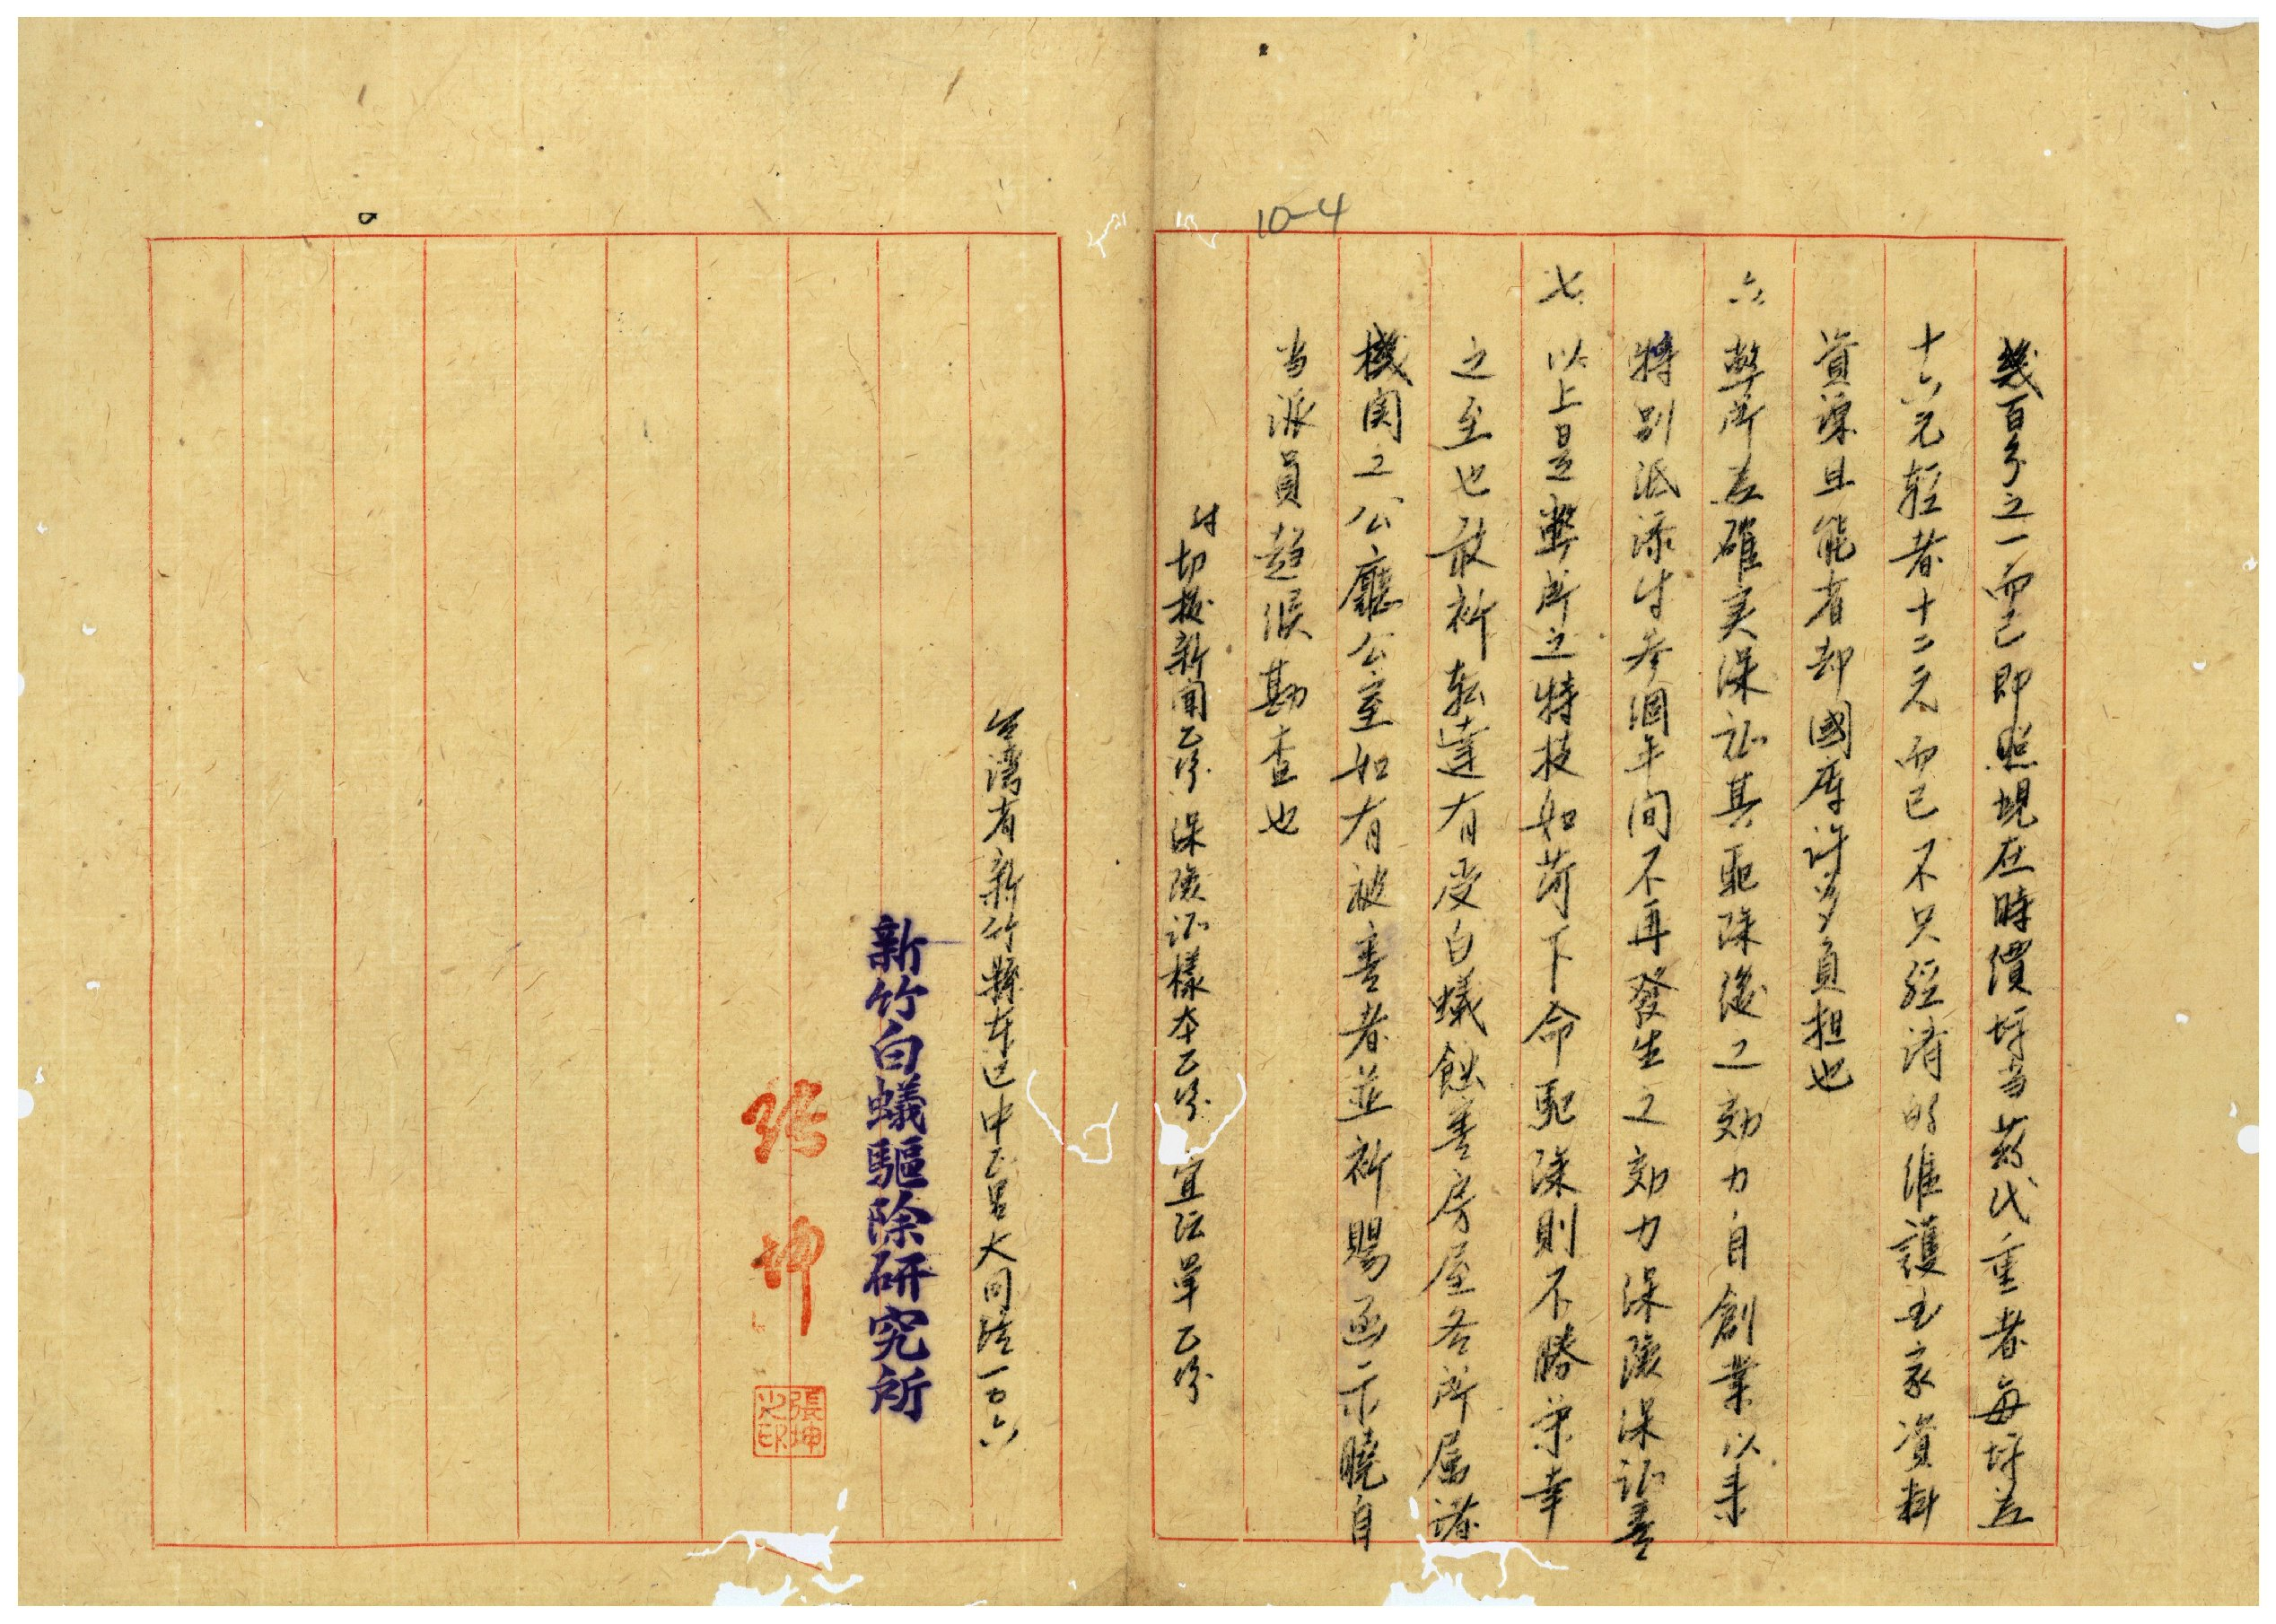 10-4
幾百分之一而已即照現在時價坪当葯代重者每坪五
十六元輕者十二元而已不只經済的維護国家資料
資源且能省却國庫許多負担也
六、弊所為確実保証其駆除後之効力自創業以来
特別派添付参個年间不再發生之効力保険保証書
七、以上是弊所之特技如荷下命駆除則不勝栄幸
之至也敢祈転達有受白蟻蝕害房屋各所属諸
機関之公廳公室如有被害者並祈賜函示曉自
当派員趋候勘查也
付切抜新聞乙份 保険証樣本乙份 宣伝單乙份
台湾省新竹縣東区中正呂大同路一〇六
新竹白蟻驅除研究所
張坤
張坤之印